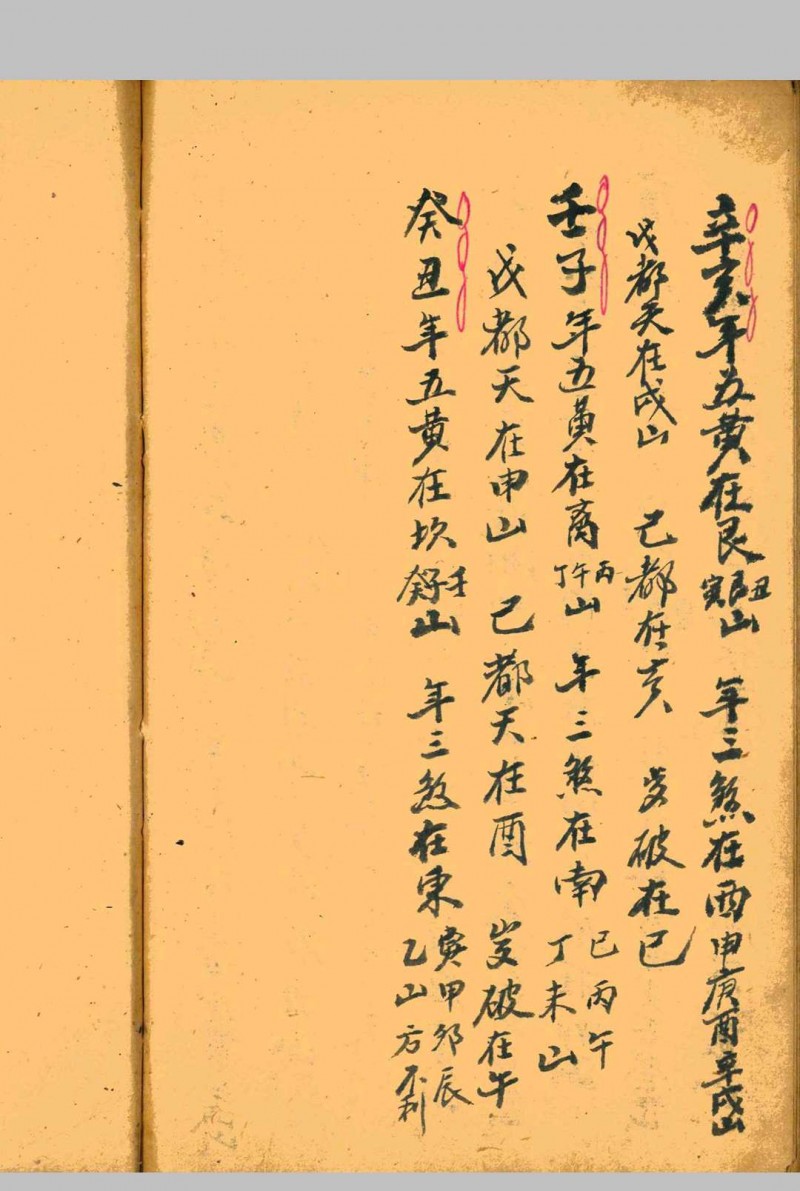 辛亥年五黄在艮丑艮寅山 年三煞在西申庚酉辛戌山
戊都天在戌山 己都在亥 岁破在巳
壬子年五黄在离丙午丁山 年三煞在南巳丙午丁未山
戊都天在申山 己都天在酉 岁破在午
癸丑年五黄在坎壬子癸山 年三煞在东寅甲卯辰乙山方不利